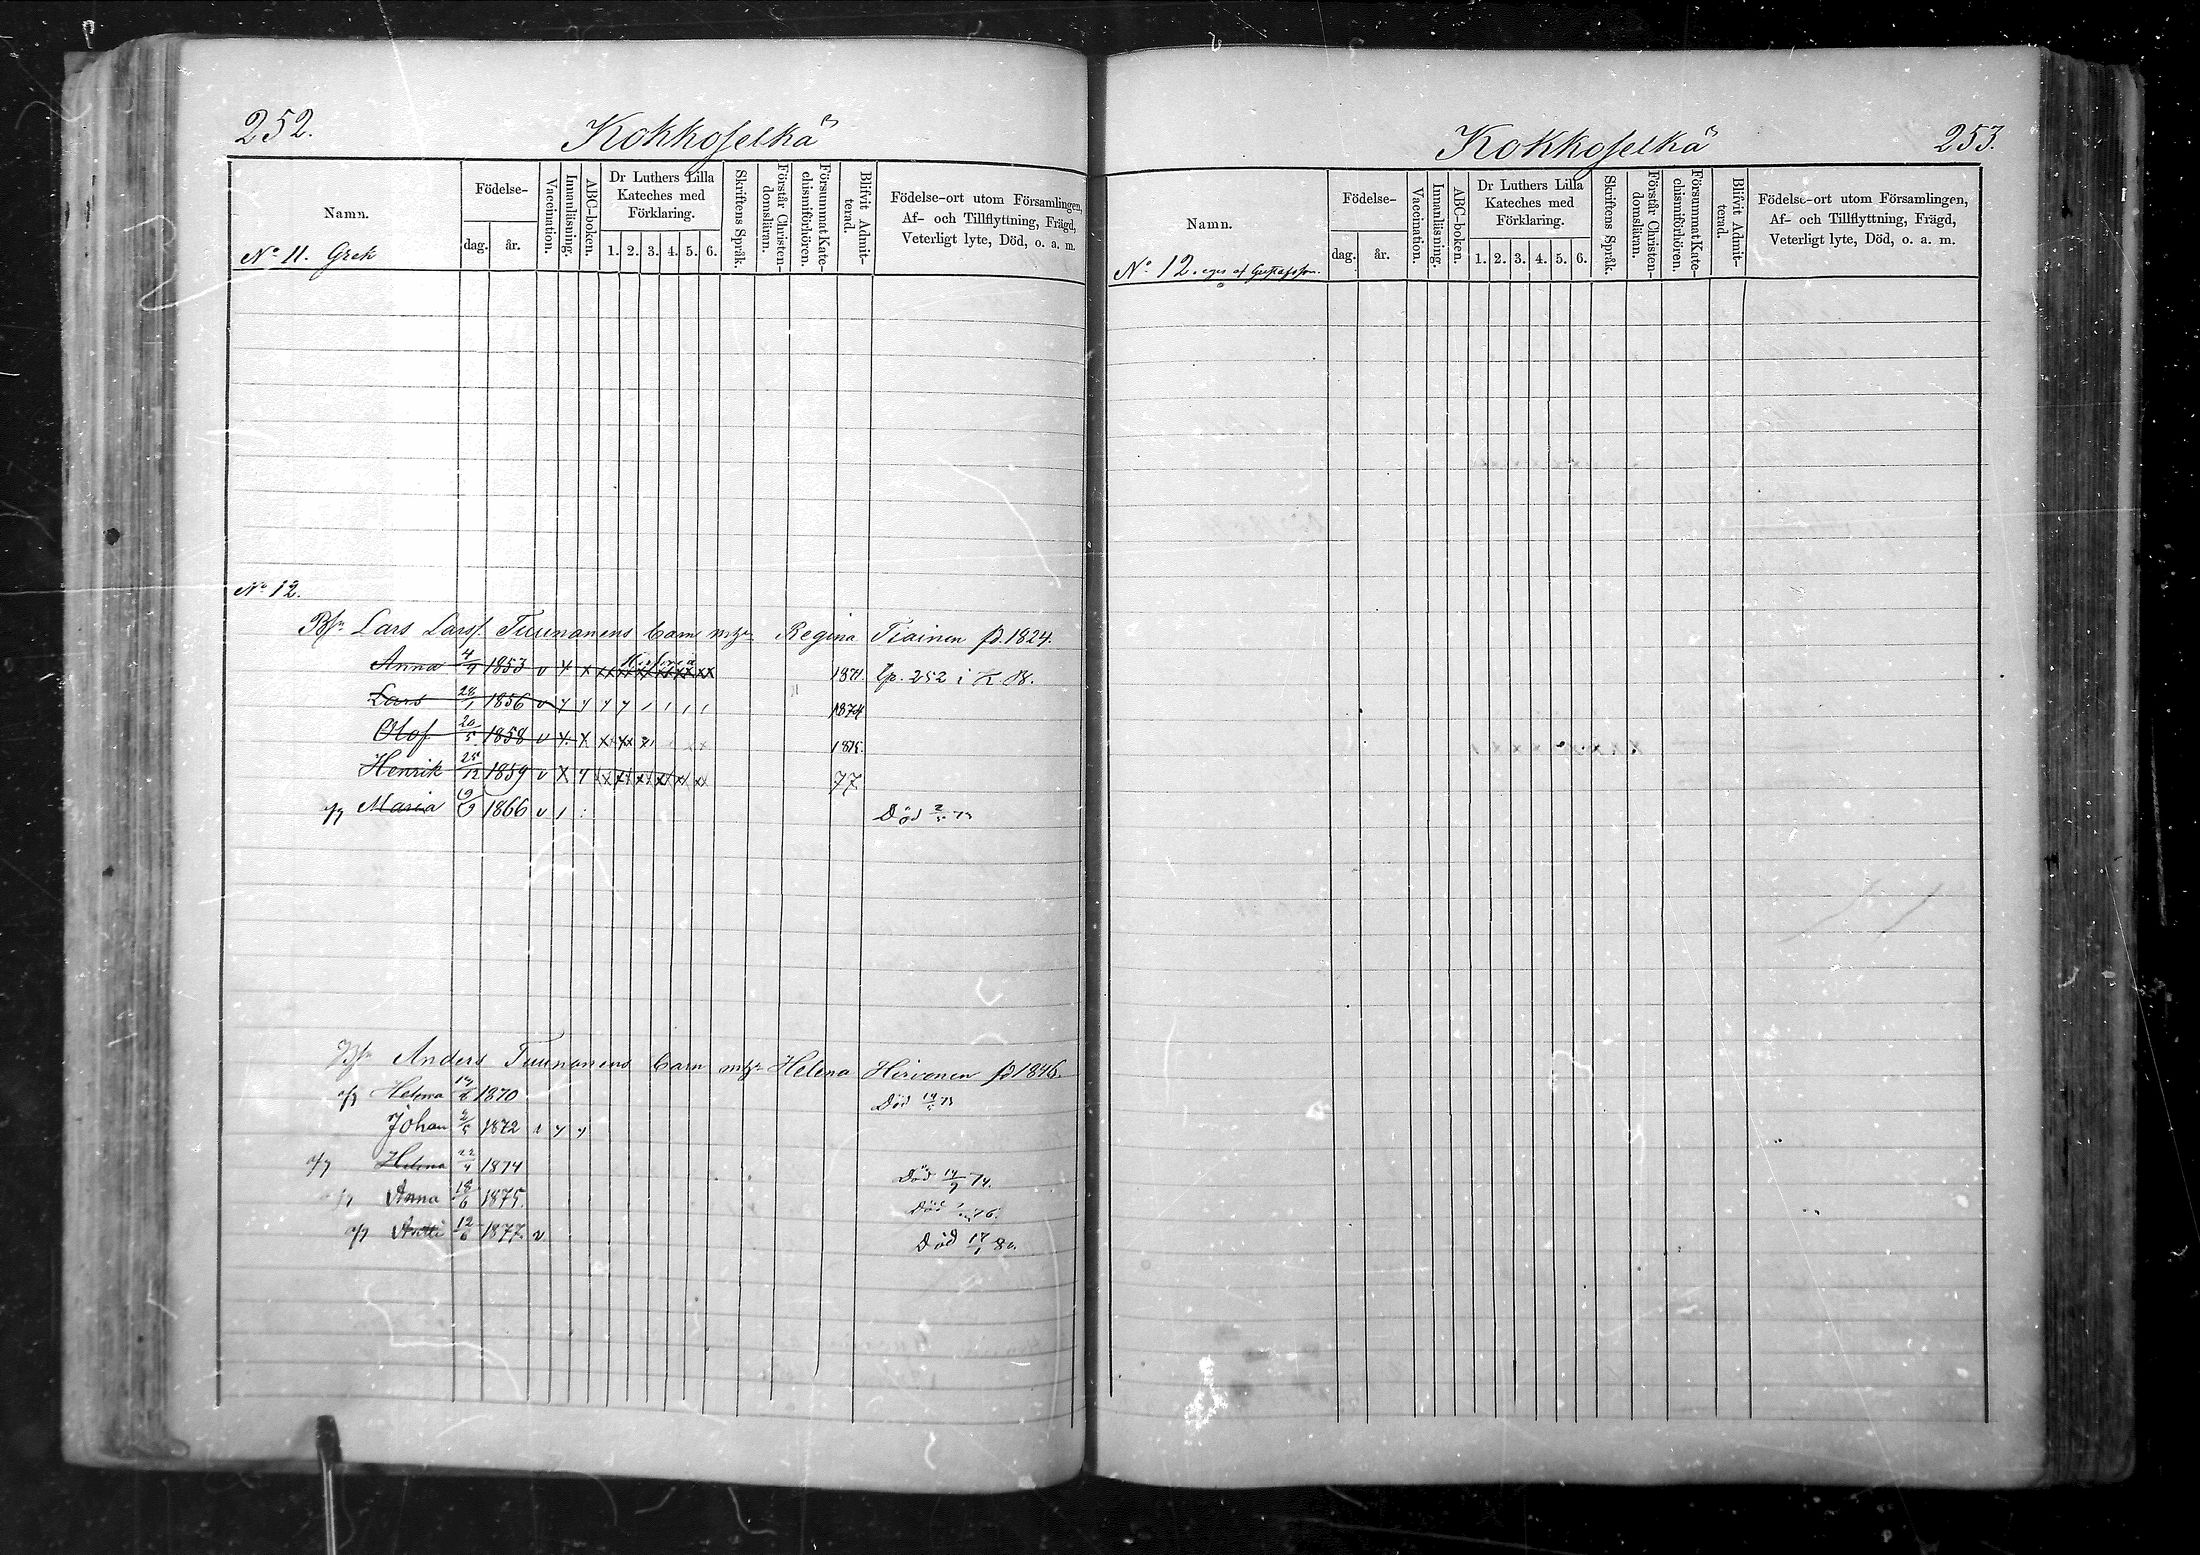 252.
Kokkoselkä
Namn.
Födelse-
dag. år.
Vaccination.
Innanläsning.
ABC-boken.
Dr Luthers Lilla Kateches med Förklaring.
1. 2. 3. 4. 5. 6.
Skriftens Språk.
Förstår Christendomsläran.
Försummat Katechismiförhören.
Blifvit Admitterad.
Födelse-ort utom Församlingen,
Af- och Tillflyttning, Frägd,
Veterligt lyte, Död, o. a. m.
No 11. Grek
No 12.
Lars Larss. Tuunanens barn Regina Tiainen f. 1824.
Anna 4/9 1853 v x x xx xx xx xx xx xx 1871. 252 i K. B.
Lars 28/1 1856 v y y y y 1874
Olof 20/5 1858 v x x x xx 1875.
Henrik 25/12 1859 v x y 77
Maria 9/9 1866 v Död 73
Anders Tuunanens barn Helena Hirvonen f. 1846.
Helena 1870 Död 73
Johan 2/5 1872 y y
Helena 22/4 1874 Död 14/9 74.
Anna 18/6 1875. Död 76.
Antti 12/6 1877. v Död 80.
Kokkoselkä
253.
Namn.
Födelse-
dag. år.
Vaccination.
Innanläsning.
ABC-boken.
Dr Luthers Lilla Kateches med Förklaring.
1. 2. 3. 4. 5. 6.
Skriftens Språk.
Förstår Christendomsläran.
Försummat Katechismiförhören.
Blifvit Admitterad.
Födelse-ort utom Församlingen,
Af- och Tillflyttning, Frägd,
Veterligt lyte, Död, o. a. m.
No 12. eges af Gustafsson.